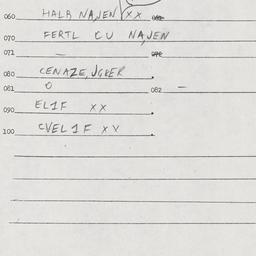 060 HALA NAJEN XX
070 FERTL CU NAJEN
071 —
080 CENAZE, JGKER
081 0 082 —
090 EL1F XX
100 CVEL1F XX